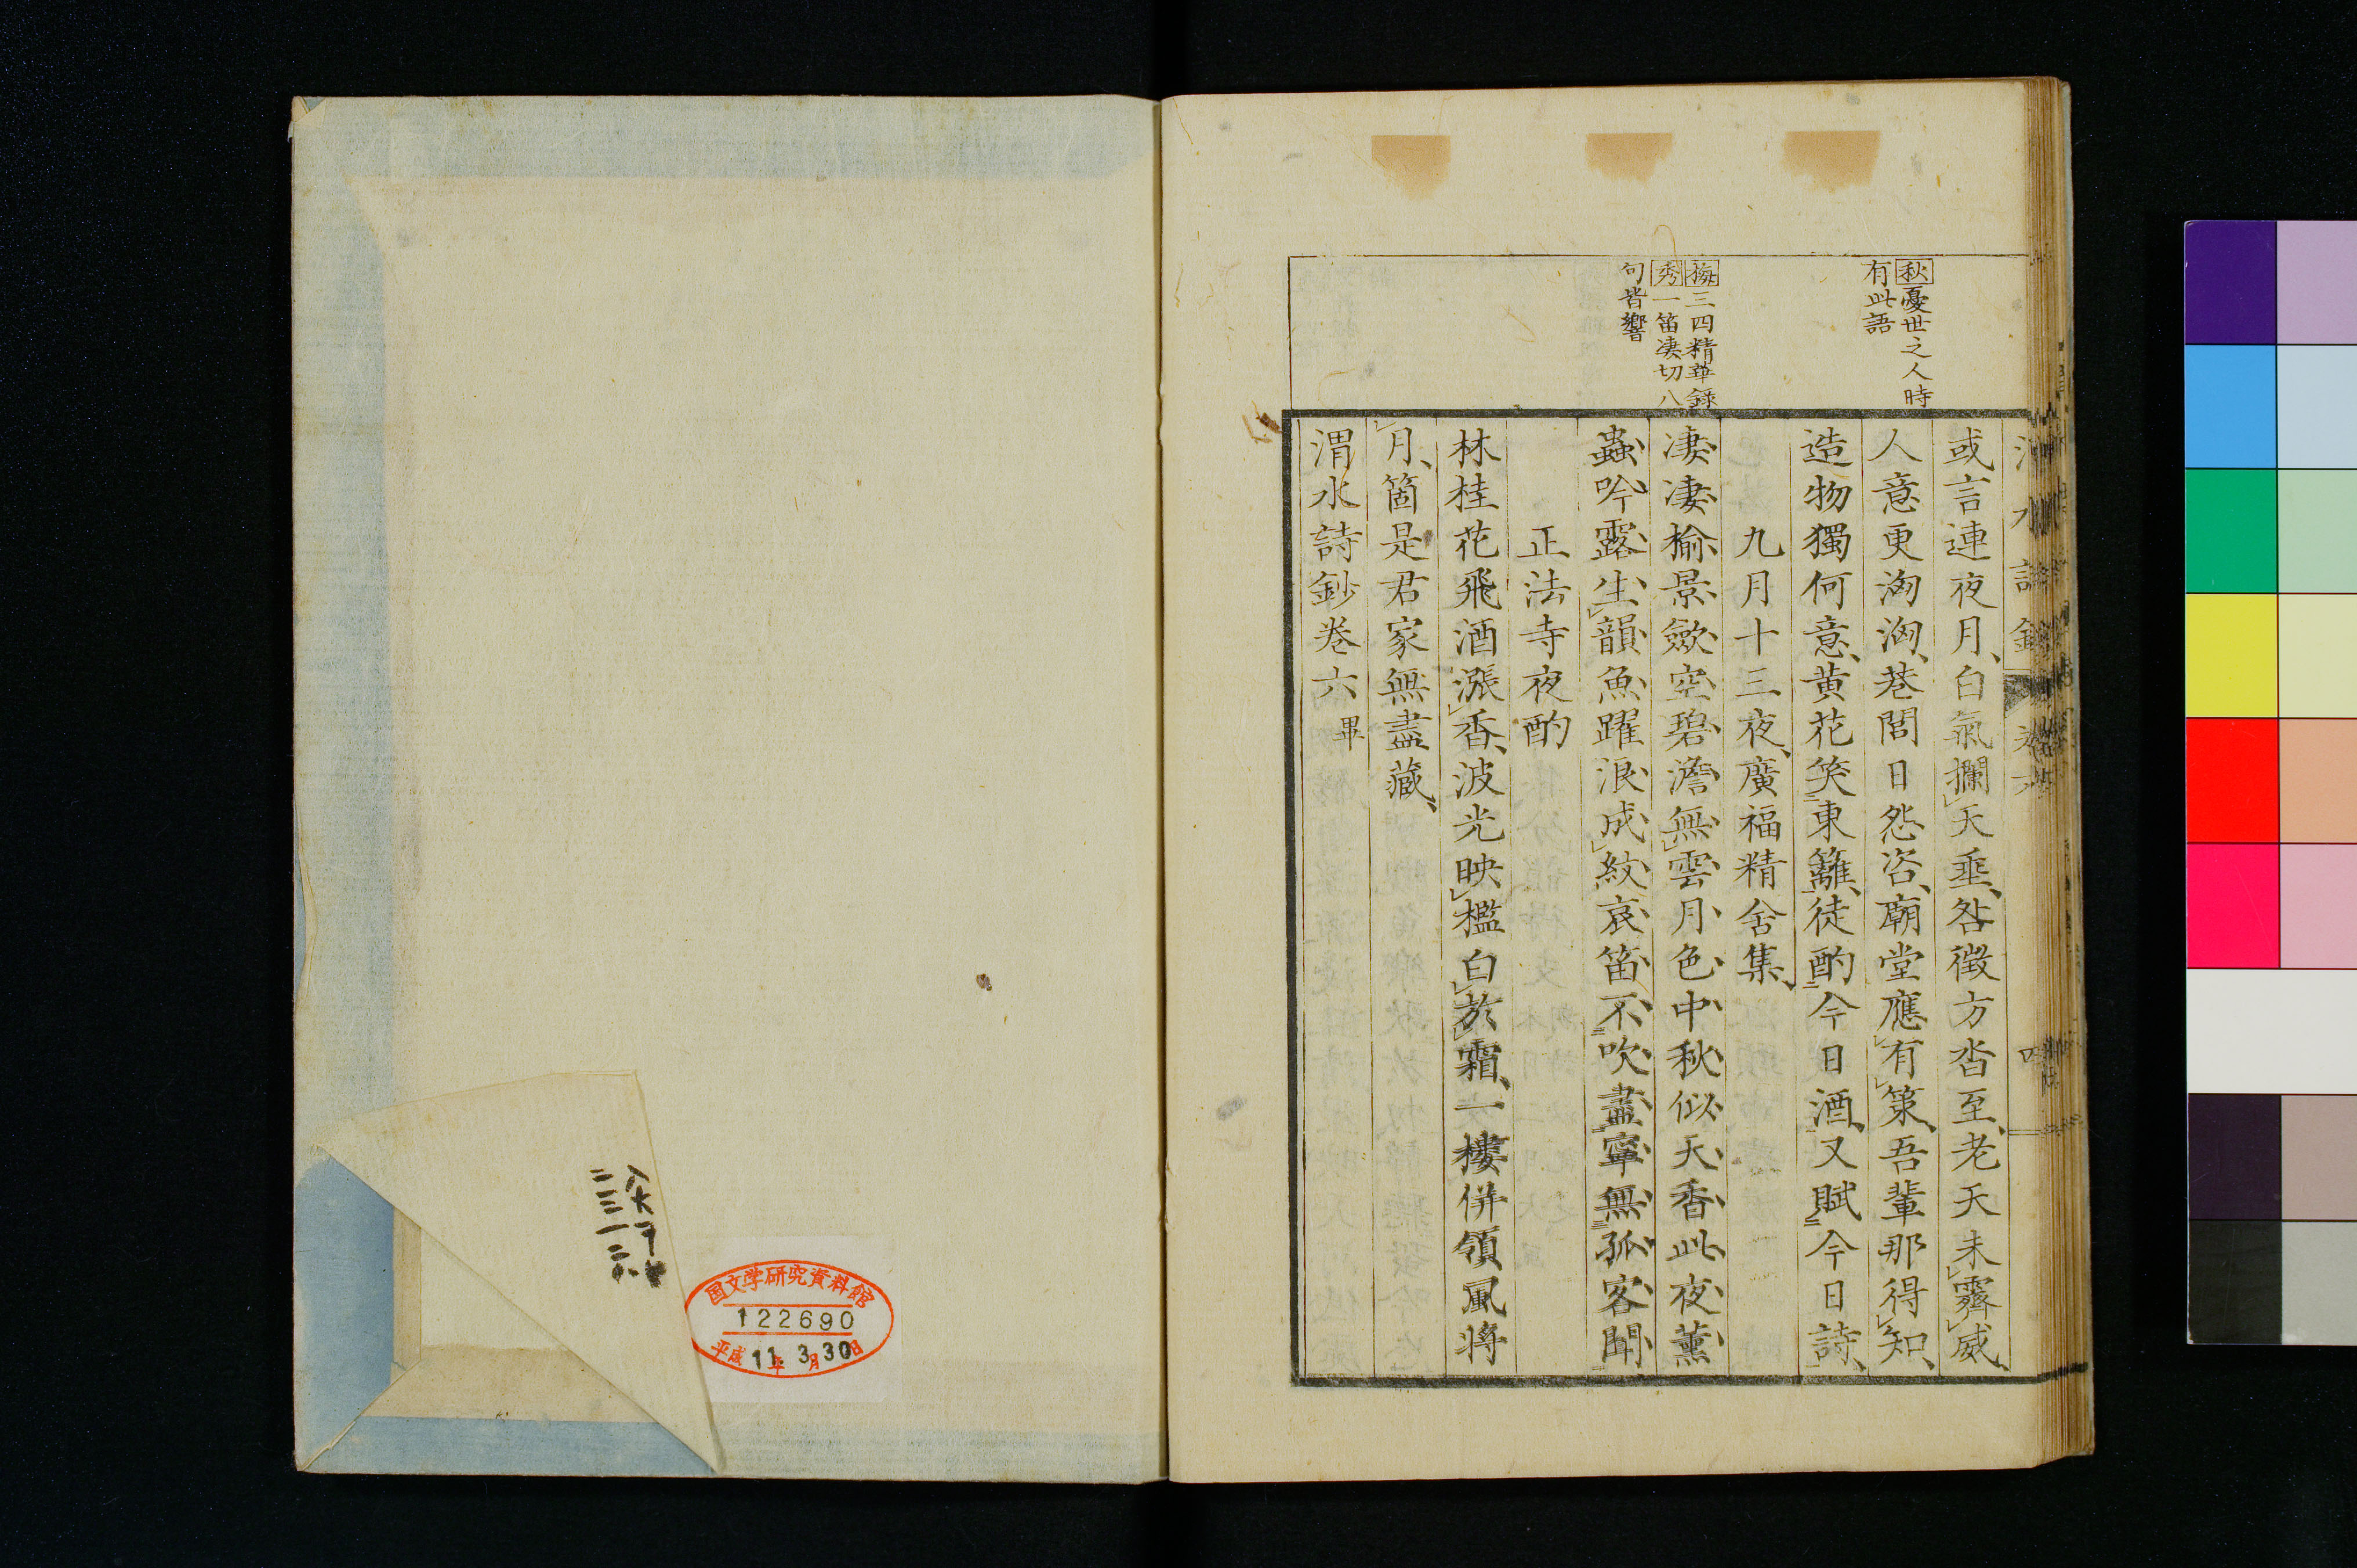 秋憂世之人時
有此語
梅三四精華錄
秀一笛凄切八
句皆響
或言連夜月、白氣攔天垂、咎徵方沓至、老天未霽威、
人意更洶洶、巷閭日怨咨、廟堂應有策、吾輩那得知、
造物獨何意、黄花笑東籬、徒酌今日酒、又賦今日詩、
九月十三夜、廣福精舍集、
凄凄楡景歛空碧、澹無雲月色中秋似、天香此夜薰
蟲吟露生韻、魚躍浪成紋、哀笛不吹盡、寧無孤客聞、
正法寺夜酌
林桂花飛酒漲香、波光映檻白於霜、一樓併領風將
月、箇是君家無盡藏、
渭水詩鈔卷六 畢
国文学研究資料館
122690
平成11年3月30日